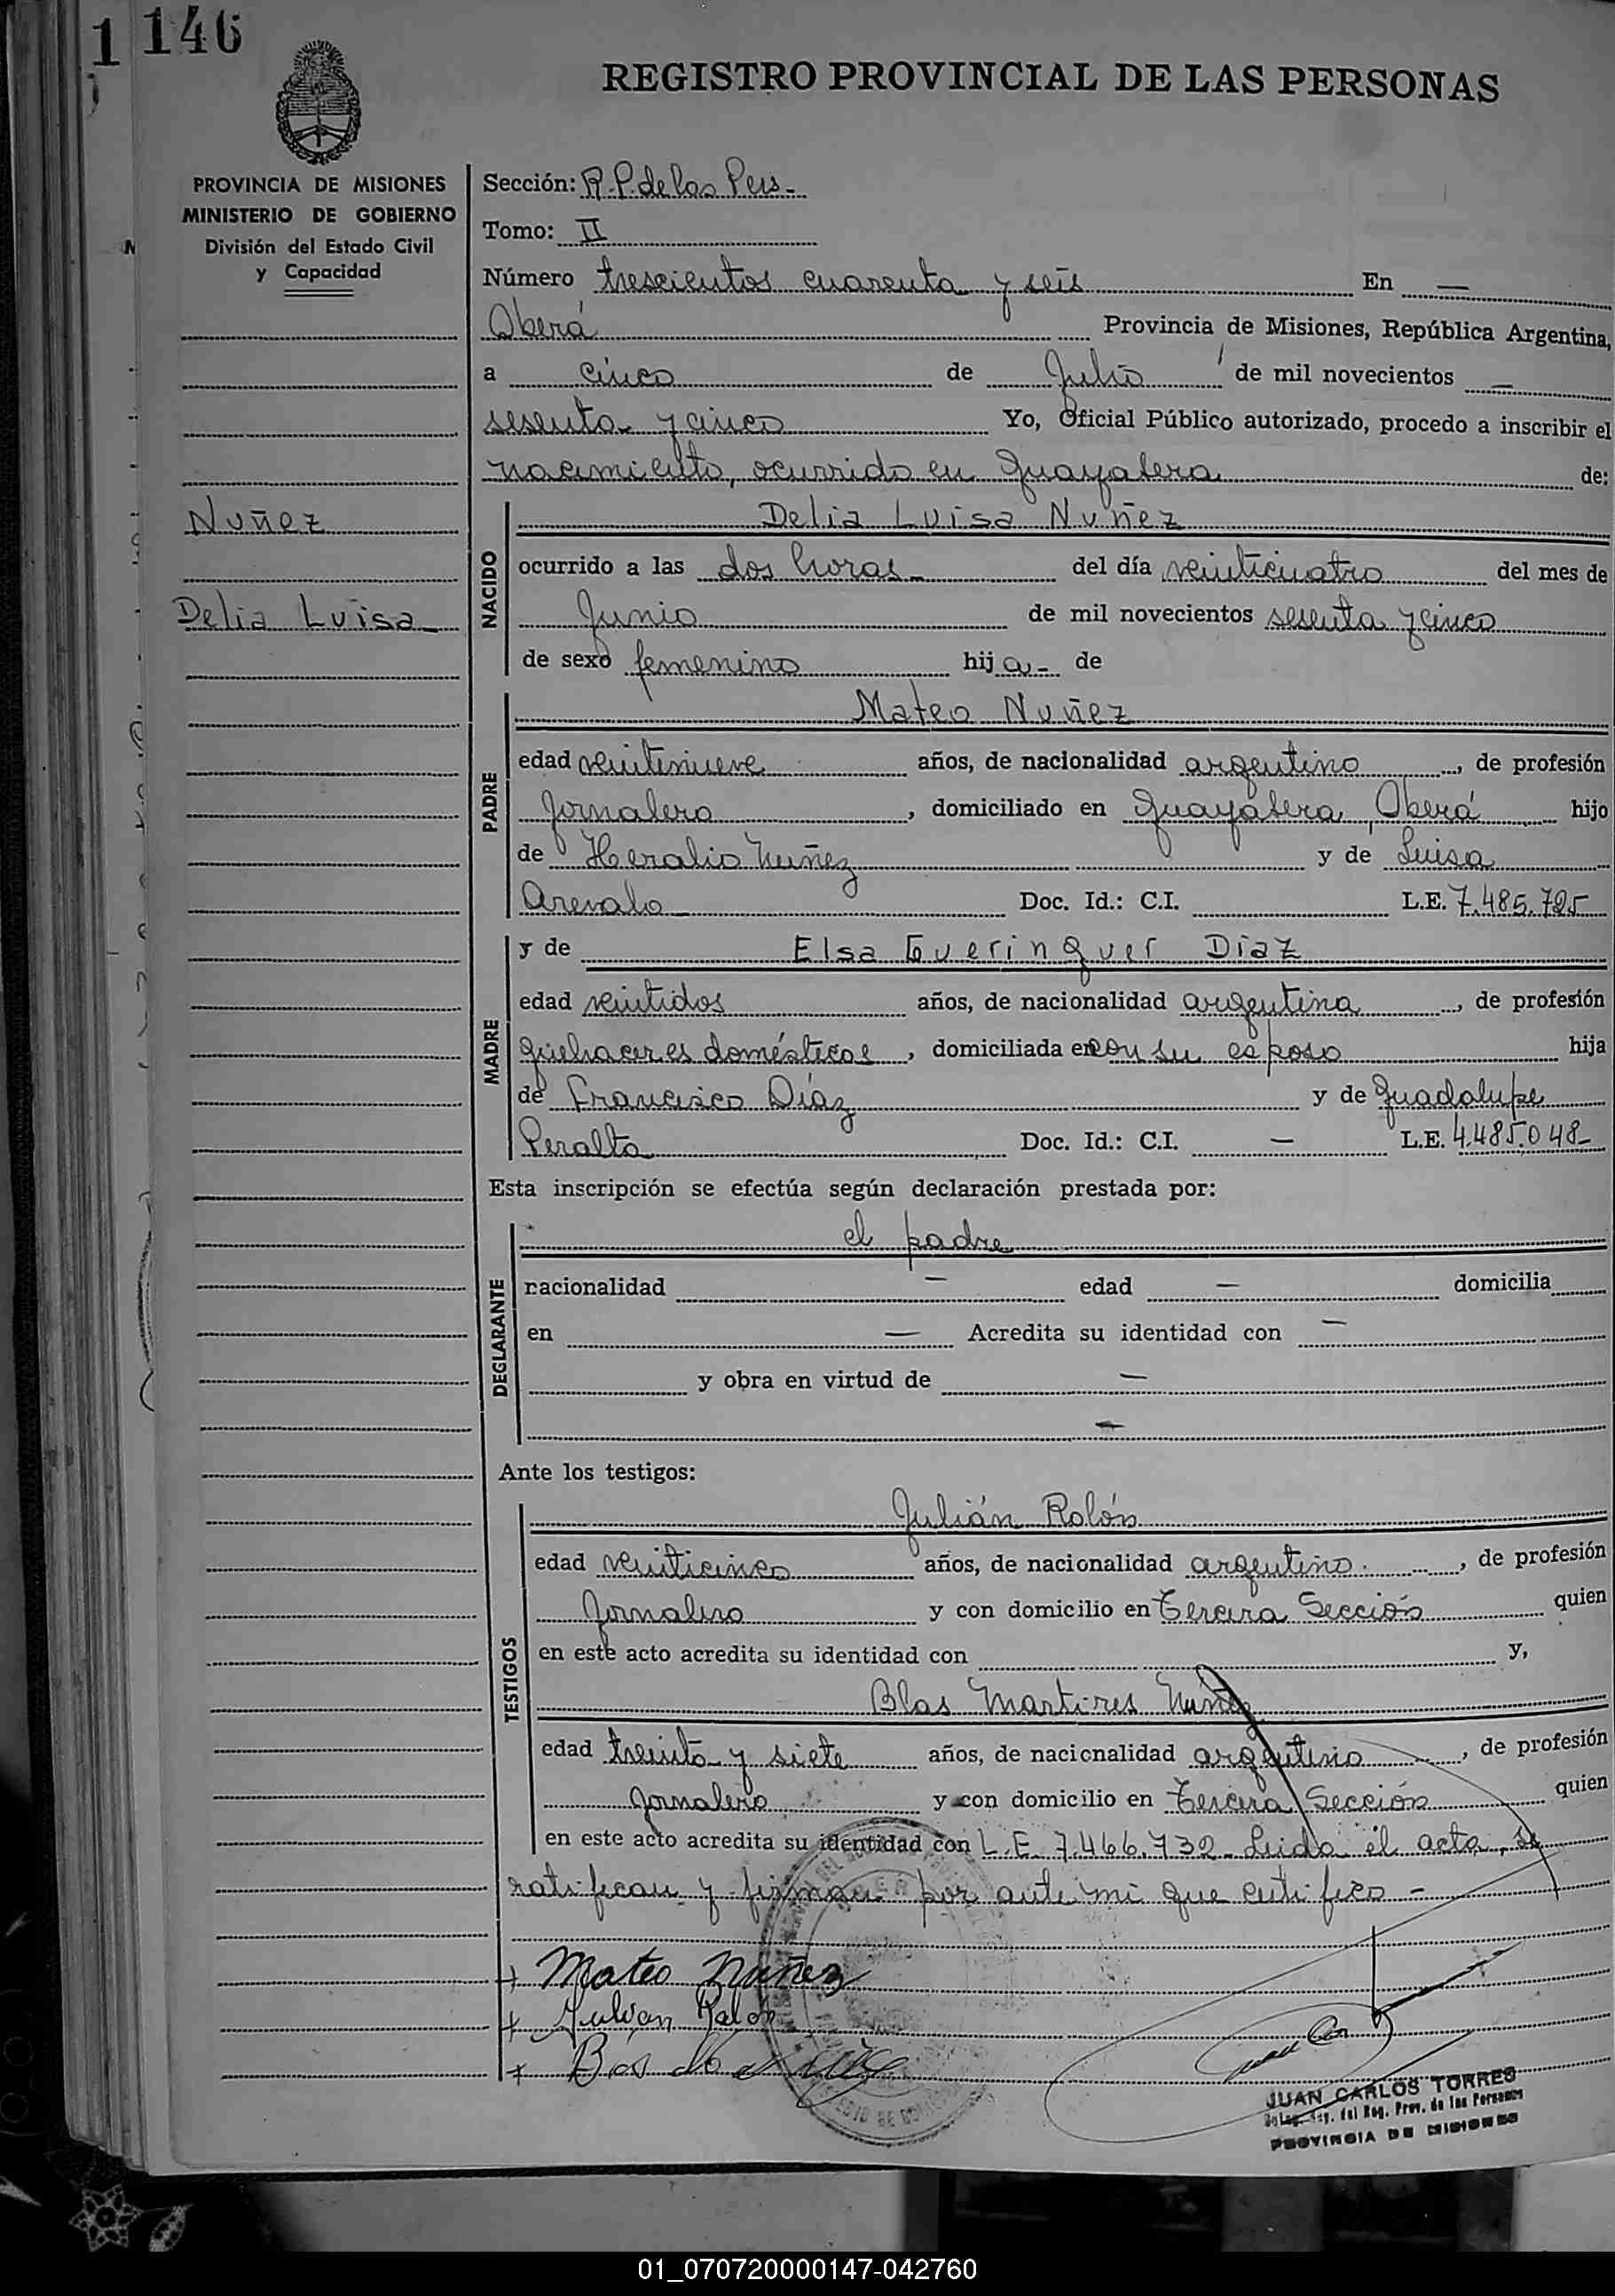 1 146
REGISTRO PROVINCIAL DE LAS PERSONAS
PROVINCIA DE MISIONES
MINISTERIO DE GOBIERNO
División del Estado Civil
y Capacidad
Nuñez
Delia Luisa
Sección: R.P. de las Pers.
Tomo: II
Número trescientos cuarenta y seis En —
Oberá Provincia de Misiones, República Argentina,
a cinco de Julio de mil novecientos —
sesenta y cinco Yo, Oficial Público autorizado, procedo a inscribir el
nacimiento, ocurrido en Guayabera de:
NACIDO
Delia Luisa Nuñez
ocurrido a las dos horas del día veinticuatro del mes de
Junio de mil novecientos sesenta y cinco
de sexo femenino hija - de
PADRE
Mateo Nuñez
edad veintinueve años, de nacionalidad argentino, de profesión
Jornalero, domiciliado en Guayabera, Oberá hijo
de Heralio Nuñez y de Luisa
Arevalo Doc. Id.: C.I. L.E. 7.485.725
MADRE
y de Elsa Guerinquer Diaz
edad veintidos años, de nacionalidad argentina, de profesión
quehaceres domésticos, domiciliada en con su esposo hija
de Francisco Díaz y de Guadalupe
Peralta Doc. Id.: C.I. — L.E. 4.485.048-
Esta inscripción se efectúa según declaración prestada por:
DECLARANTE
el padre
nacionalidad — edad — domicilia
en — Acredita su identidad con —
y obra en virtud de —
—
Ante los testigos:
TESTIGOS
Julián Rolón
edad veinticinco años, de nacionalidad argentino, de profesión
Jornalero y con domicilio en Tercera Sección quien
en este acto acredita su identidad con y,
Blas Martires Nuñez
edad treinta y siete años, de nacionalidad argentino, de profesión
Jornalero y con domicilio en Tercera Sección quien
en este acto acredita su identidad con L.E. 7.466.732. Leida el acta, se
ratifican y firman por ante mi que certifico -
+ Mateo Nuñez
+ Julian Rolon
+
JUAN CARLOS TORRES
del Reg. Prov. de las Personas
PROVINCIA DE MISIONES
01_070720000147-042760